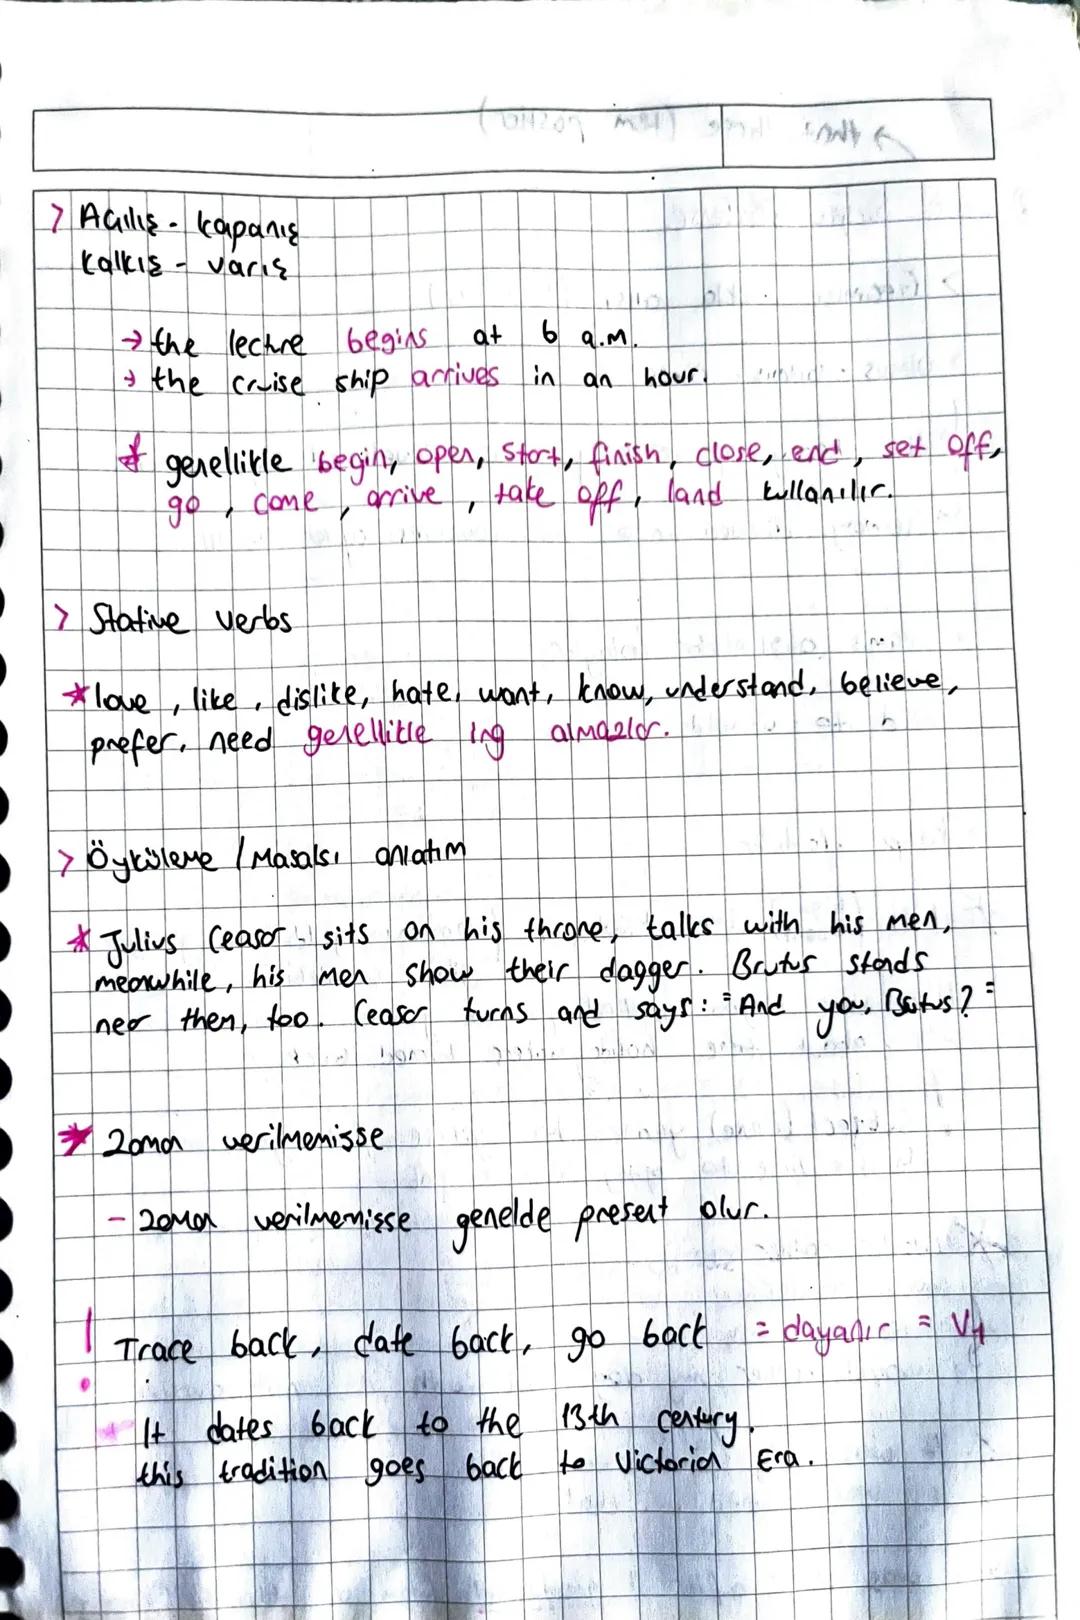 > Açılış - kapanış
kalkış - varış
→ the lecture begins at 6 a.m.
→ the cruise ship arrives in an hour.
* genellikle begin, open, start, finish, close, end, set off,
go, come, arrive, take off, land kullanılır.
> Stative verbs
* love, like, dislike, hate, want, know, understand, believe,
prefer, need genellikle ing almazlar.
> Öyküleme / Masalsı anlatım
* Julius Ceasar sits on his throne, talks with his men,
meanwhile, his men show their dagger. Brutus stands
near them, too. Ceasar turns and says: "And you, Brutus?"
* zaman verilmemişse
- zaman verilmemişse genelde present olur.
! Trace back, date back, go back = dayanır = V1
It dates back to the 13th century.
this tradition goes back to Victorian Era.